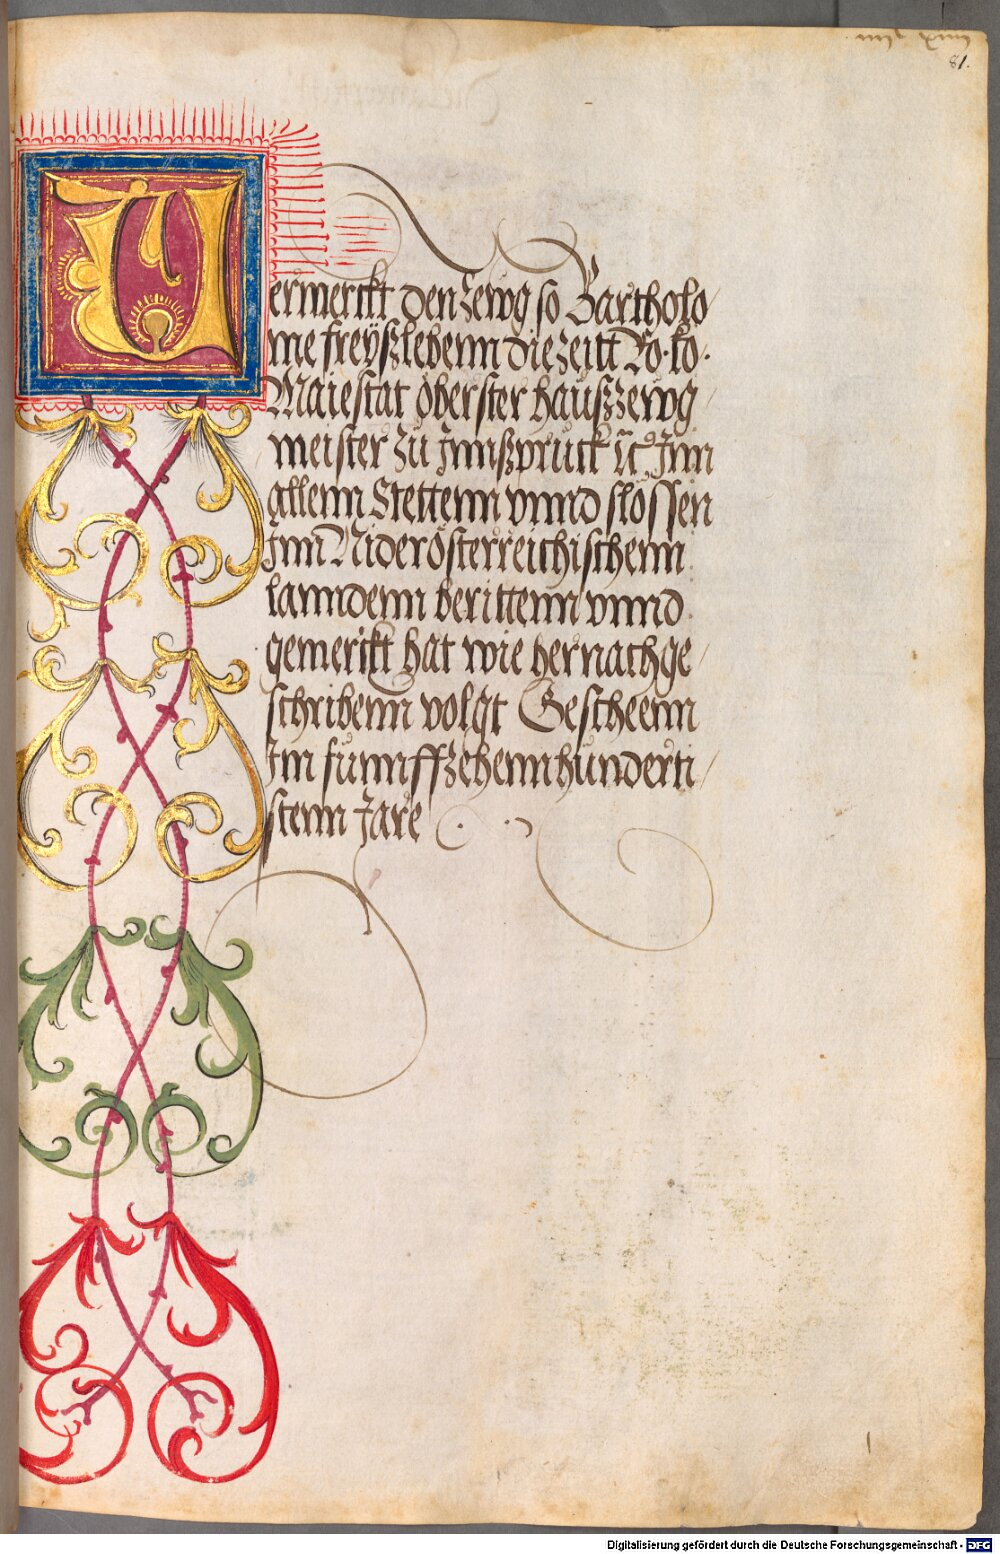 81.
Vermerckt den Zewg so Bartholo
me freyszlebenn die Zeitt Ro. ko.
Maiestat öberster hauszzewg
meister zu Jnnszpruck ꝛc Jnn
allenn Stettenn vnnd slössen
Jnn Niderösterreichischenn
lanndenn berittenn vnnd
gemerckt hat wie hernachge
schribenn volgt Gescheenn
Jm funnffzehennhunderti
stenn Jare
Digitalisierung gefördert durch die Deutsche Forschungsgemeinschaft - DFG